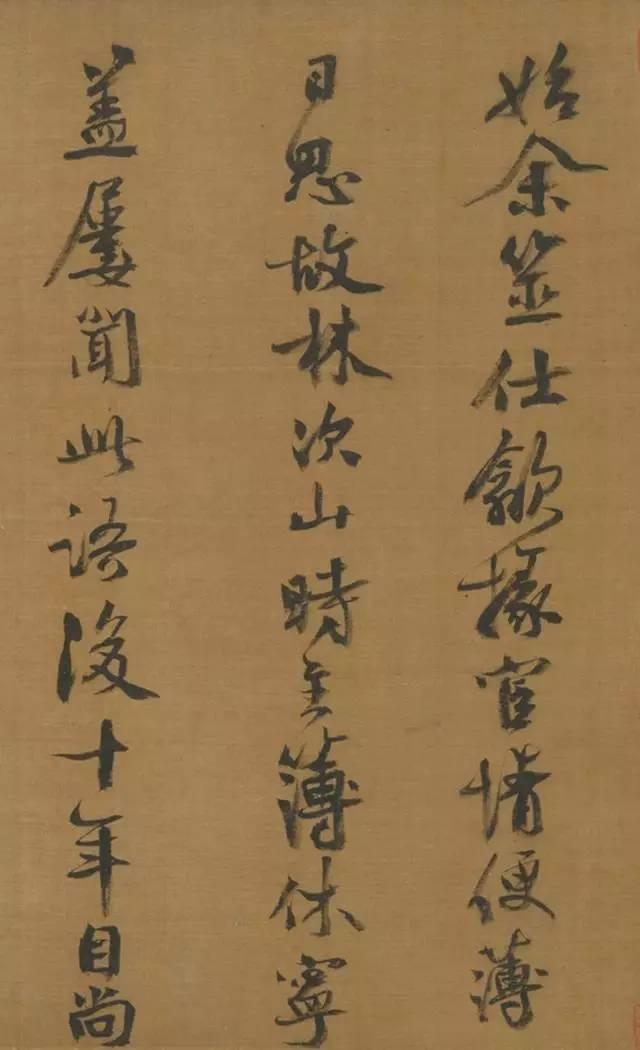 始余筮仕歙掾宦情便薄
日思故林次山時主簿休寧
盖屡聞此語後十年自尚